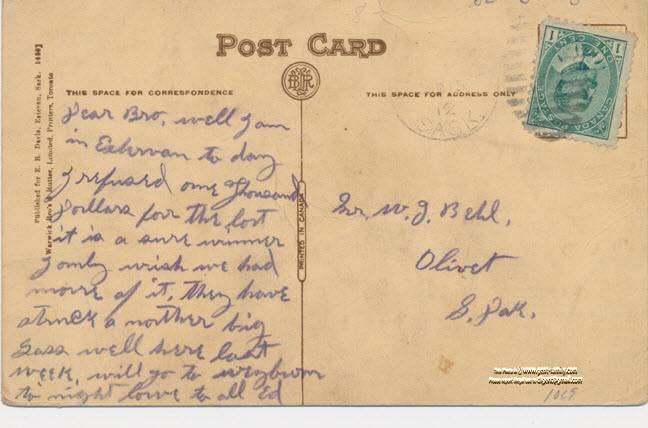 POST CARD
THIS SPACE FOR CORRESPONDENCE
THIS SPACE FOR ADDRESS ONLY
Published for E. H. Davis, Estevan, Sask. 1480]
Warwick Bro's & Rutter, Limited, Printers, Toronto
PRINTED IN CANADA
12
SASK.
CANADA POSTAGE
ONE CENT
1 1
Dear Bro, well I am
in Estervan to day
I refused one Thousand
Dollars for the lost
it is a sure winner
I only wish we had
more of it, They have
struck a norther big
Gass well here last
week, will go to weyburn
to night love to all Ed
Mr. W. J. Behl,
Olivet
S. Dak.
1069